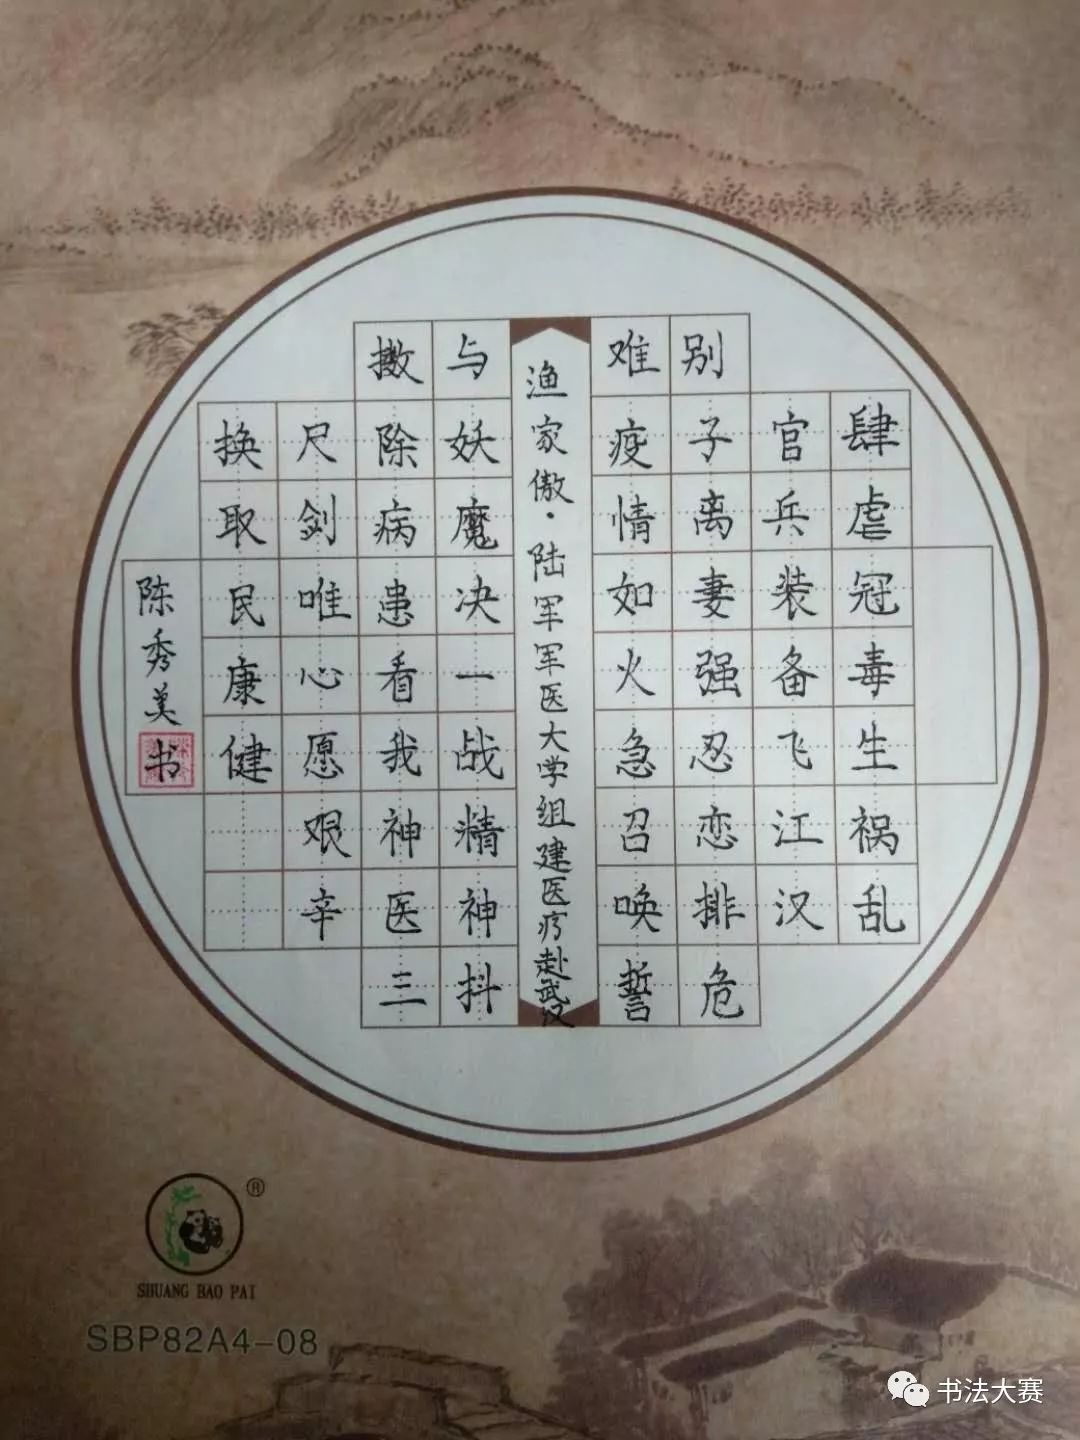 肆虐冠毒生祸乱
官兵装备飞江汉
别子离妻强忍恋排危
难疫情如火急召唤誓
渔家傲·陆军军医大学组建医疗赴武汉
与妖魔决一战精神抖
擞除病患看我神医三
尺剑唯心愿艰辛
换取民康健
陈秀美书
SHUANG BAO PAI
®
SBP82A4-08
书法大赛